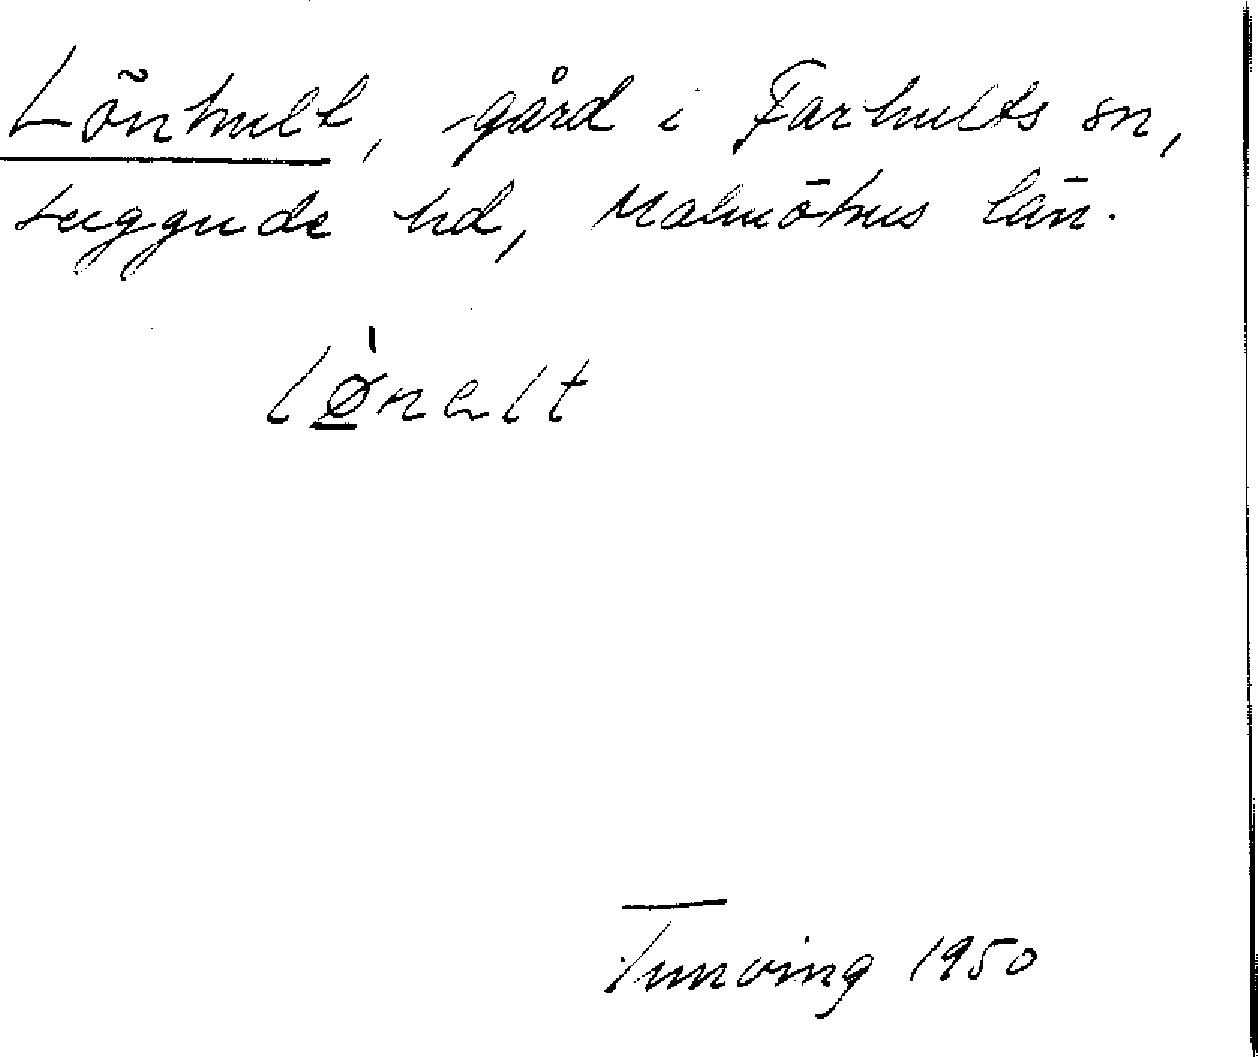 Lönhult, gård i Farhults sn,
Luggude hd, Malmöhus län.
lø̲̀nalt
Tunving 1950